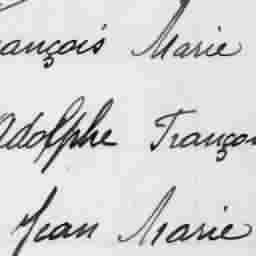 ançois Marie
Adolphe Françoi
Jean Marie